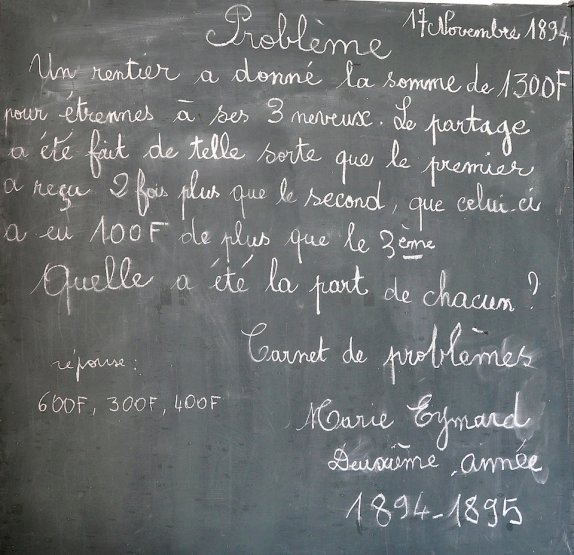 Problème
17 Novembre 1894
Un rentier a donné la somme de 1300F
pour étrennes à ses 3 neveux. Le partage
a été fait de telle sorte que le premier
a reçu 2 fois plus que le second, que celui-ci
a eu 100F de plus que le 3ème
Quelle a été la part de chacun ?
Carnet de problèmes
réponse :
600F, 300F, 400F
Marie Eymard
Deuxième année
1894-1895